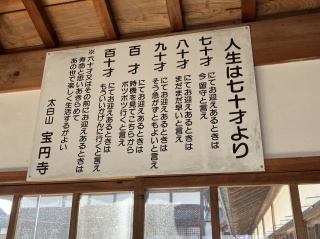 人生は七十才より
七十才
にてお迎えあるときは
今留守と言え
八十才
にてお迎えあるときは
まだまだ早いと言え
九十才
にてお迎えあるときは
そう急がずともよいと言え
百才
にてお迎えあるときは
時機を見てこちらから
ボツボツ行くと言え
百十才
にてお迎えあるときは
もういいかげんに行くと言え
※六十才又はその前にお迎えあるときは
寿命と思いあきらめて
あの世で楽しく生活するがよい
太白山 宝円寺